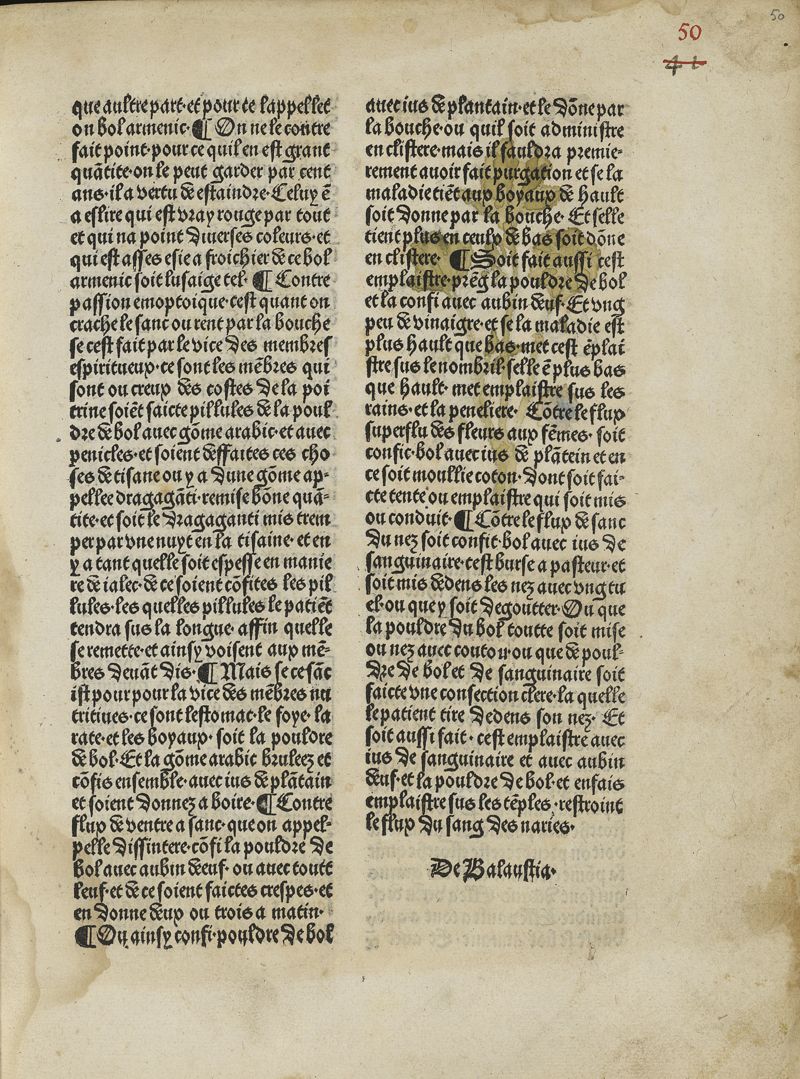 50
50
41
que aultre part·et pour ce lappellet
on bol armenic·¶ On ne le contre
fait point·pour ce quil en est grant
quãtite·on le peut garder par cent
ans·il a vertu de estaindre·Celuy ē
a eslire qui est vray rouge par tout
et qui na point diuerses coleurs·et
qui est asses esie a froichier de ce bol
armenic soit lusaige tel·¶ Contre
passion emoptoique·cest quant on
crache le sanc ou rent par la bouche
se cest fait par le vice des membres
espiritueux·ce sont les mēbres qui
sont ou creux des costes de la poi
trine soiēt faicte pillules de la poul
dre de bol auec gõme arabic·et auec
penicles·et soient deffaites ces cho
ses de tisane ou y a dune gõme ap-
pellee dragagãti·remise bõne quã-
tite·et soit le dragaganti mis trem
per par vne nuyt en la tisaine·et en
y a tant quelle soit espesse en manie
re de ialec·de ce soient cõfites les pil
lules·les quelles pillules le patiēt
tendra sus la longue·affin quelle
se remette·et ainsy voisent aux mē-
bres deuãt dis·¶ Mais se ce sãc
ist pour pour la vice des mēbres nu
tritiues·ce sont lestomac·le foye·la
rate·et les boyaux·soit la pouldre
de bol·Et la gõme arabic bruleez et
cõfis ensemble·auec ius de plãtain
et soient donnez a boire·¶ Contre
flux de ventre a sanc·que on appel-
pelle dissintere·cõfi la pouldre de
bol auec aubin deuf·ou auec toute
leuf·et de ce soient faictes crespes·et
en donne deux ou trois a matin·
¶ Ou ainsy confi·pouldre de bol
auec ius de plantain·et le dõne par
la bouche·ou quil soit administre
en clistere·mais il fauldra premie-
rement auoir fait purgation et se la
maladie tiēt aux boyaux de hault
soit donne par la bouche·Et selle
tient plus en ceulx de bas soit dõne
en clistere·¶ Soit fait aussi cest
emplaistre·prēg la pouldre de bol
et la confi auec aubin deuf·Et vng
peu de vinaigre·et se la maladie est
plus hault que bas·met cest ēplai
stre sus le nombril·selle ē plus bas
que hault·met emplaistre sus les
rains·et la peneliere·Cõtre le flux
superflu des fleurs aux fēmes·soit
confic·bol auec ius de plãtein et en
ce soit moullie coton·dont soit fai-
cte tente ou emplaistre qui soit mis
ou conduit·¶ Cõtre le flux de sanc
du nez soit confit·bol auec ius de
sanguinaire·cest burse a pasteur·et
soit mis dedens les nez auec vng tu
el·ou que y soit degoutter·Ou que
la pouldre du bol toutte soit mise
ou nez auec coutou·ou que de poul-
dre de bol et de sanguinaire soit
faicte vne confection clere·la quelle
le patient tire dedens son nez·Et
soit aussi fait·cest emplaistre auec
ius de sanguinaire et auec aubin
deuf·et la pouldre de bol·et en fais
emplaistre sus les tēples·restroint
le flux du sang des naries·
De Balaustia·